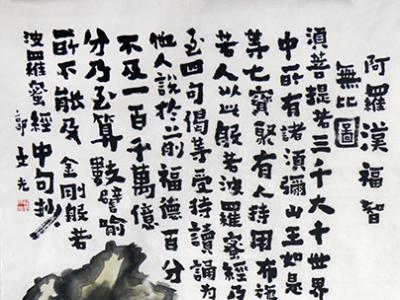 阿羅漢福智
無比圖
須菩提若三千大千世界
中所有諸須彌山王如是
等七寶聚有人持用布施
若人以此般若波羅蜜經乃
至四句偈等受持讀誦為
他人說於前福德百分
不及一百千萬億
分乃至算數譬喻
所不能及 金剛般若
波羅蜜經中句抄
郭
光